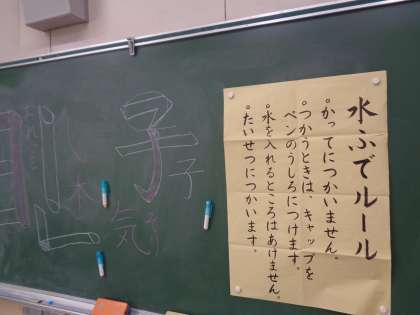 水ふでルール
。かってにつかいません。
。つかうときは、キャップを
ペンのうしろにつけます。
。水を入れるところはあけません。
。たいせつにつかいます。
子
子
気
木